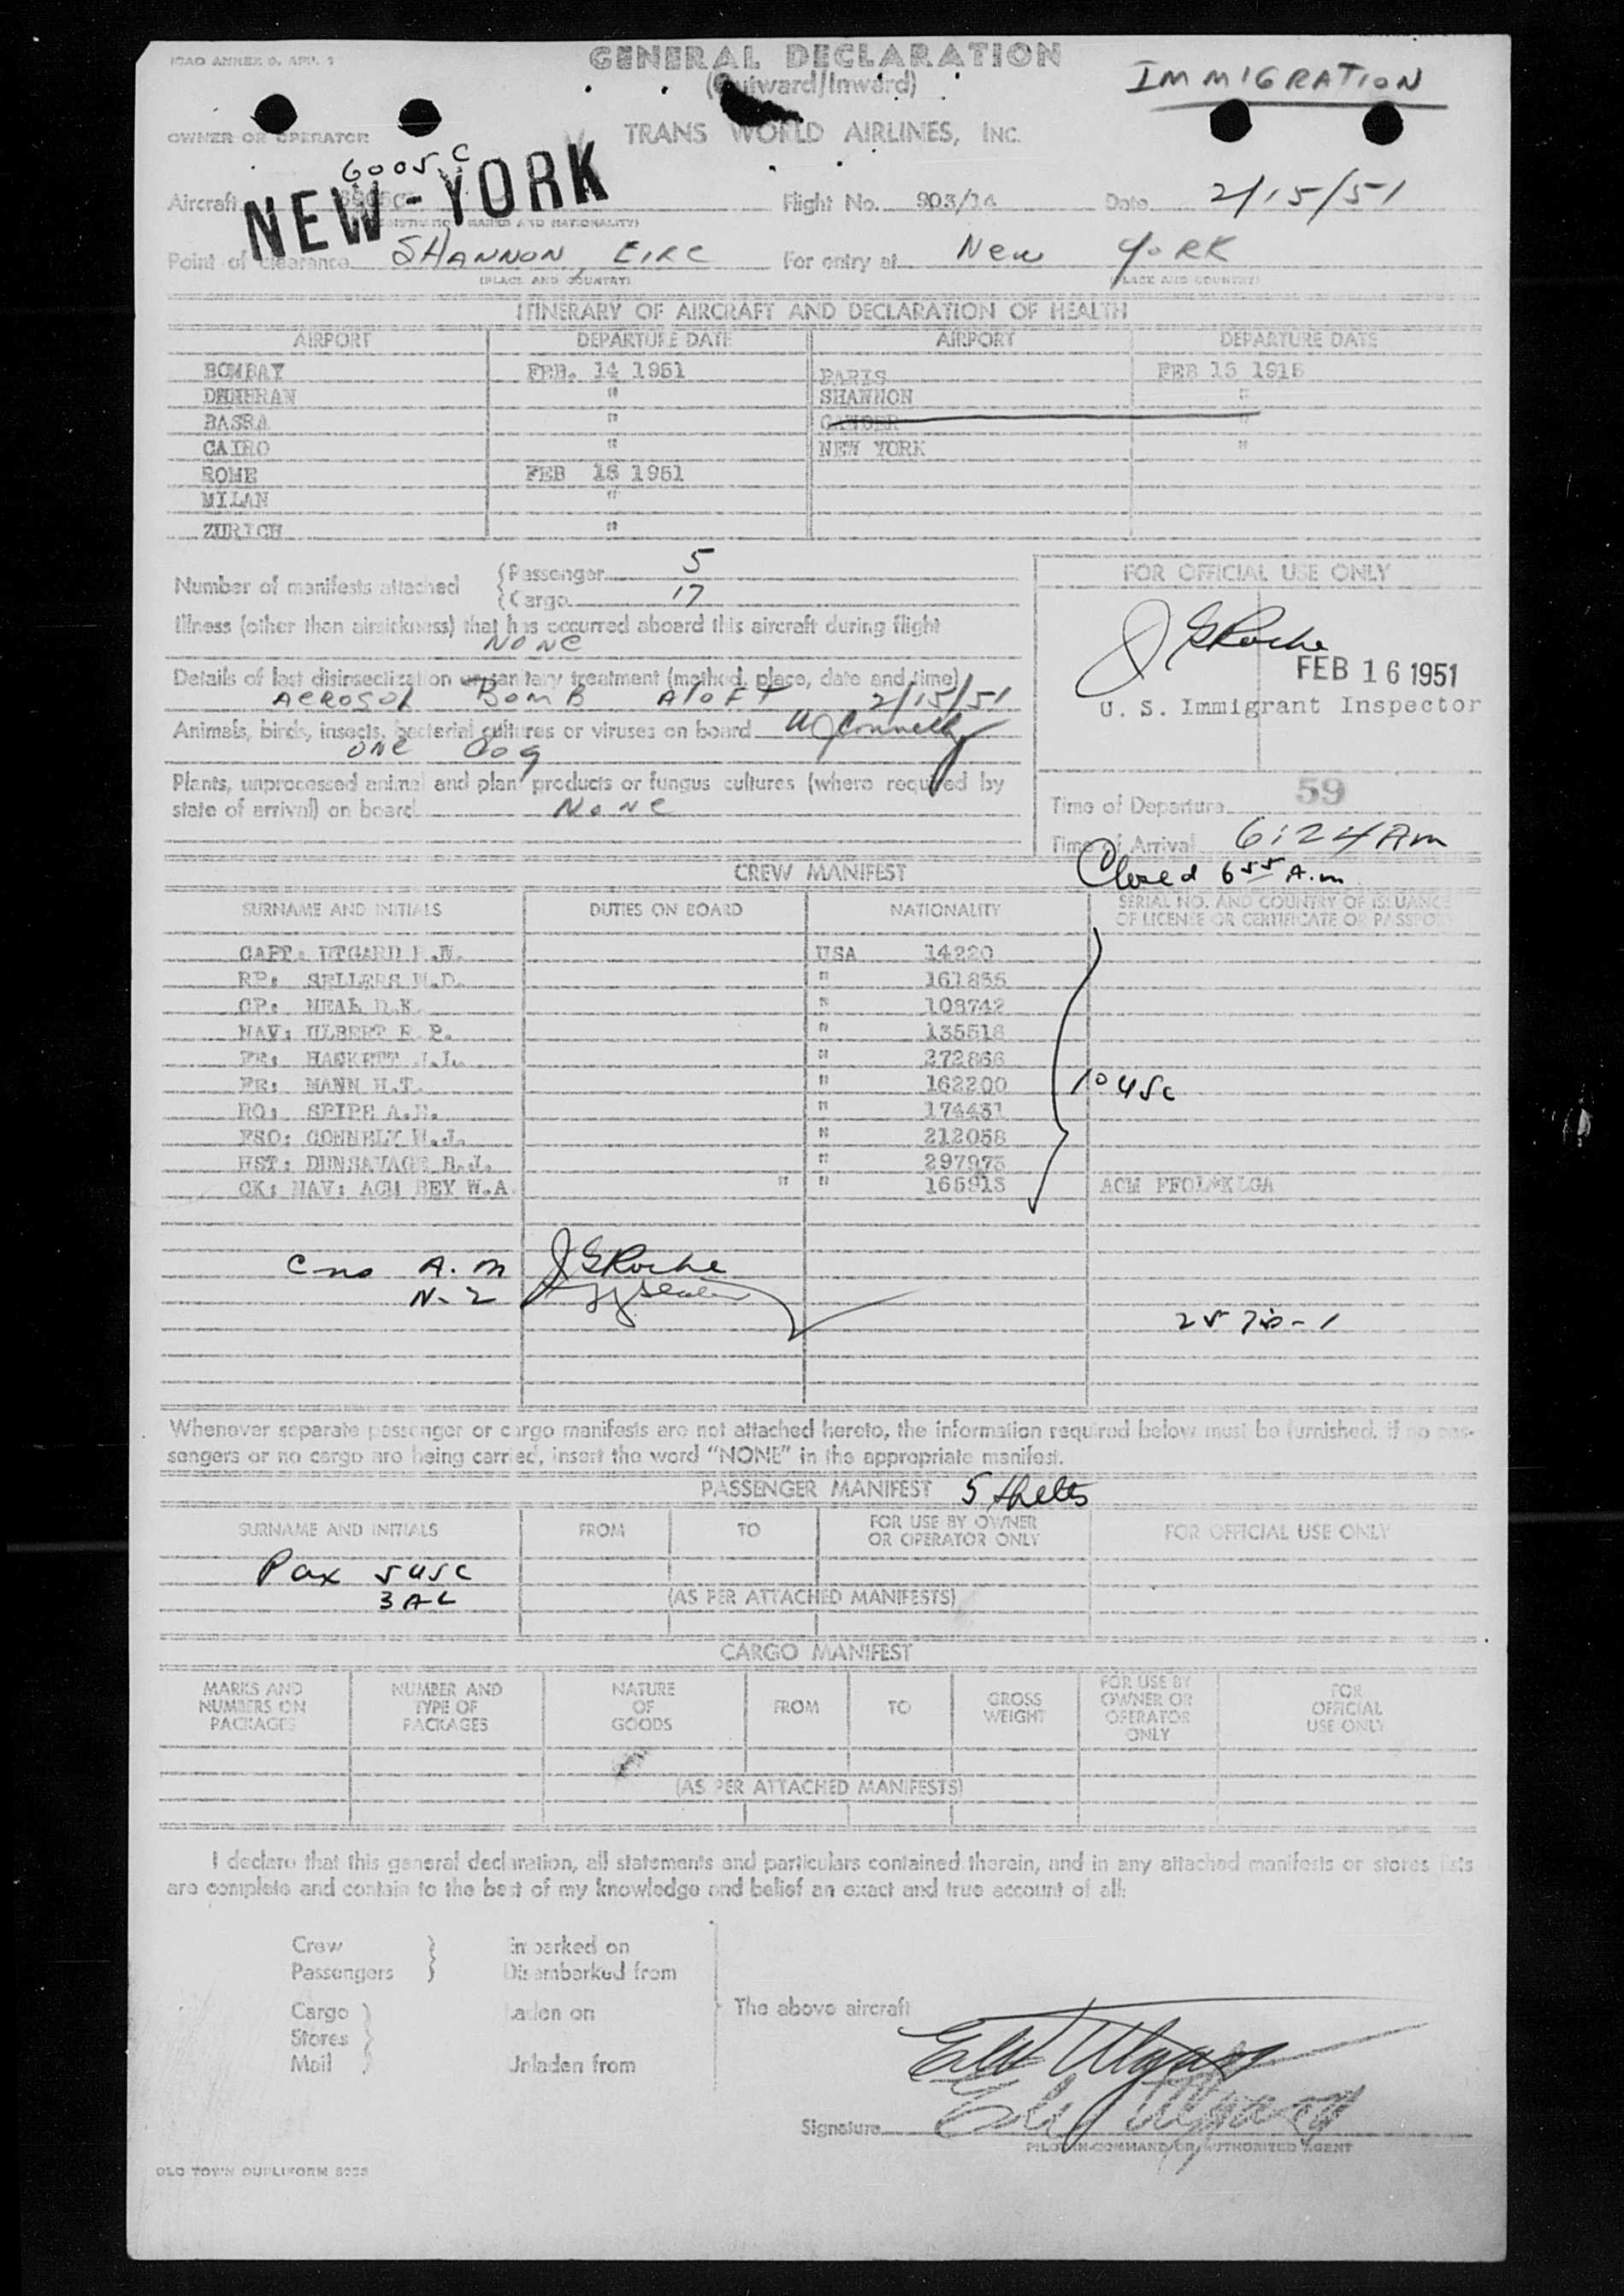 ICAO ANNEX 9, APP. 1
GENERAL DECLARATION
(Outward/Inward)
IMMIGRATION
OWNER OR OPERATOR
TRANS WORLD AIRLINES, INC.
6005 C
NEW-YORK
Aircraft
Flight No. 903/14 Date 2/15/51
Point of Clearance SHANNON, EIRE For entry at New YORK
(PLACE AND COUNTRY) (PLACE AND COUNTRY)
ITINERARY OF AIRCRAFT AND DECLARATION OF HEALTH
AIRPORT DEPARTURE DATE AIRPORT DEPARTURE DATE
BOMBAY FEB. 14 1951 PARIS FEB 15 1915
DHEHRAN " SHANNON "
BASRA " GANDER "
CAIRO " NEW YORK "
ROME FEB 15 1951
MILAN "
ZURICH "
Number of manifests attached
(Passenger 5
(Cargo 17
Illness (other than airsickness) that has occurred aboard this aircraft during flight
NONE
Details of last disinsectization or sanitary treatment (method, place, date and time)
AEROSOL BOMB ALOFT 2/15/51
Animals, birds, insects, bacterial cultures or viruses on board WJConnelly
ONE Dog
Plants, unprocessed animal and plant products or fungus cultures (where required by
state of arrival) on board NONE
FOR OFFICIAL USE ONLY
J G Roche
FEB 16 1951
U. S. Immigrant Inspector
59
Time of Departure
Time of Arrival 6:24 Am
Closed 6 55 A.m.
CREW MANIFEST
SURNAME AND INITIALS DUTIES ON BOARD NATIONALITY SERIAL NO. AND COUNTRY OF ISSUANCE
OF LICENCE OR CERTIFICATE OR PASSPO
CAPT: UTGARD E.W. USA 14220
RP: SELLERS W.D. " 161855
CP: NEAL D.K. " 108742
NAV: ULBERT R.P. " 135518
FE: HASKETT J.L. " 272866
FE: MANN H.T. " 162200
RO: A.D. " 174431
FSO: CONNELY W.J. " 212058
HST: DUNSAVAGE B.J. " 297975
CK: NAV: ACM BEY W.A. " " 165913 ACM
10 USC
A.m J G Roche
N-2
PASSENGER MANIFEST 5 sheets
Whenever separate passenger or cargo manifests are not attached hereto, the information required below must be furnished. If no pas-
sengers or no cargo are being carried, insert the word "NONE" in the appropriate manifest.
SURNAME AND INITIALS FROM TO FOR USE BY OWNER
OR OPERATOR ONLY FOR OFFICIAL USE ONLY
Pax 5 USC
3 AL
(AS PER ATTACHED MANIFESTS)
CARGO MANIFEST
MARKS AND
NUMBERS ON
PACKAGES
NUMBER AND
TYPE OF
PACKAGES
NATURE
OF
GOODS
FROM
TO
GROSS
WEIGHT
FOR USE BY
OWNER OR
OPERATOR
ONLY
FOR
OFFICIAL
USE ONLY
(AS PER ATTACHED MANIFESTS)
I declare that this general declaration, all statements and particulars contained therein, and in any attached manifests or stores lists
are complete and contain to the best of my knowledge and belief an exact and true account of all:
Crew Embarked on
Passengers Disembarked from
Cargo Laden on
Stores
Mail Unladen from
The above aircraft
Signature
PILOT-IN-COMMAND/OR/AUTHORIZED AGENT
OLD TOWN DUPLIFORM